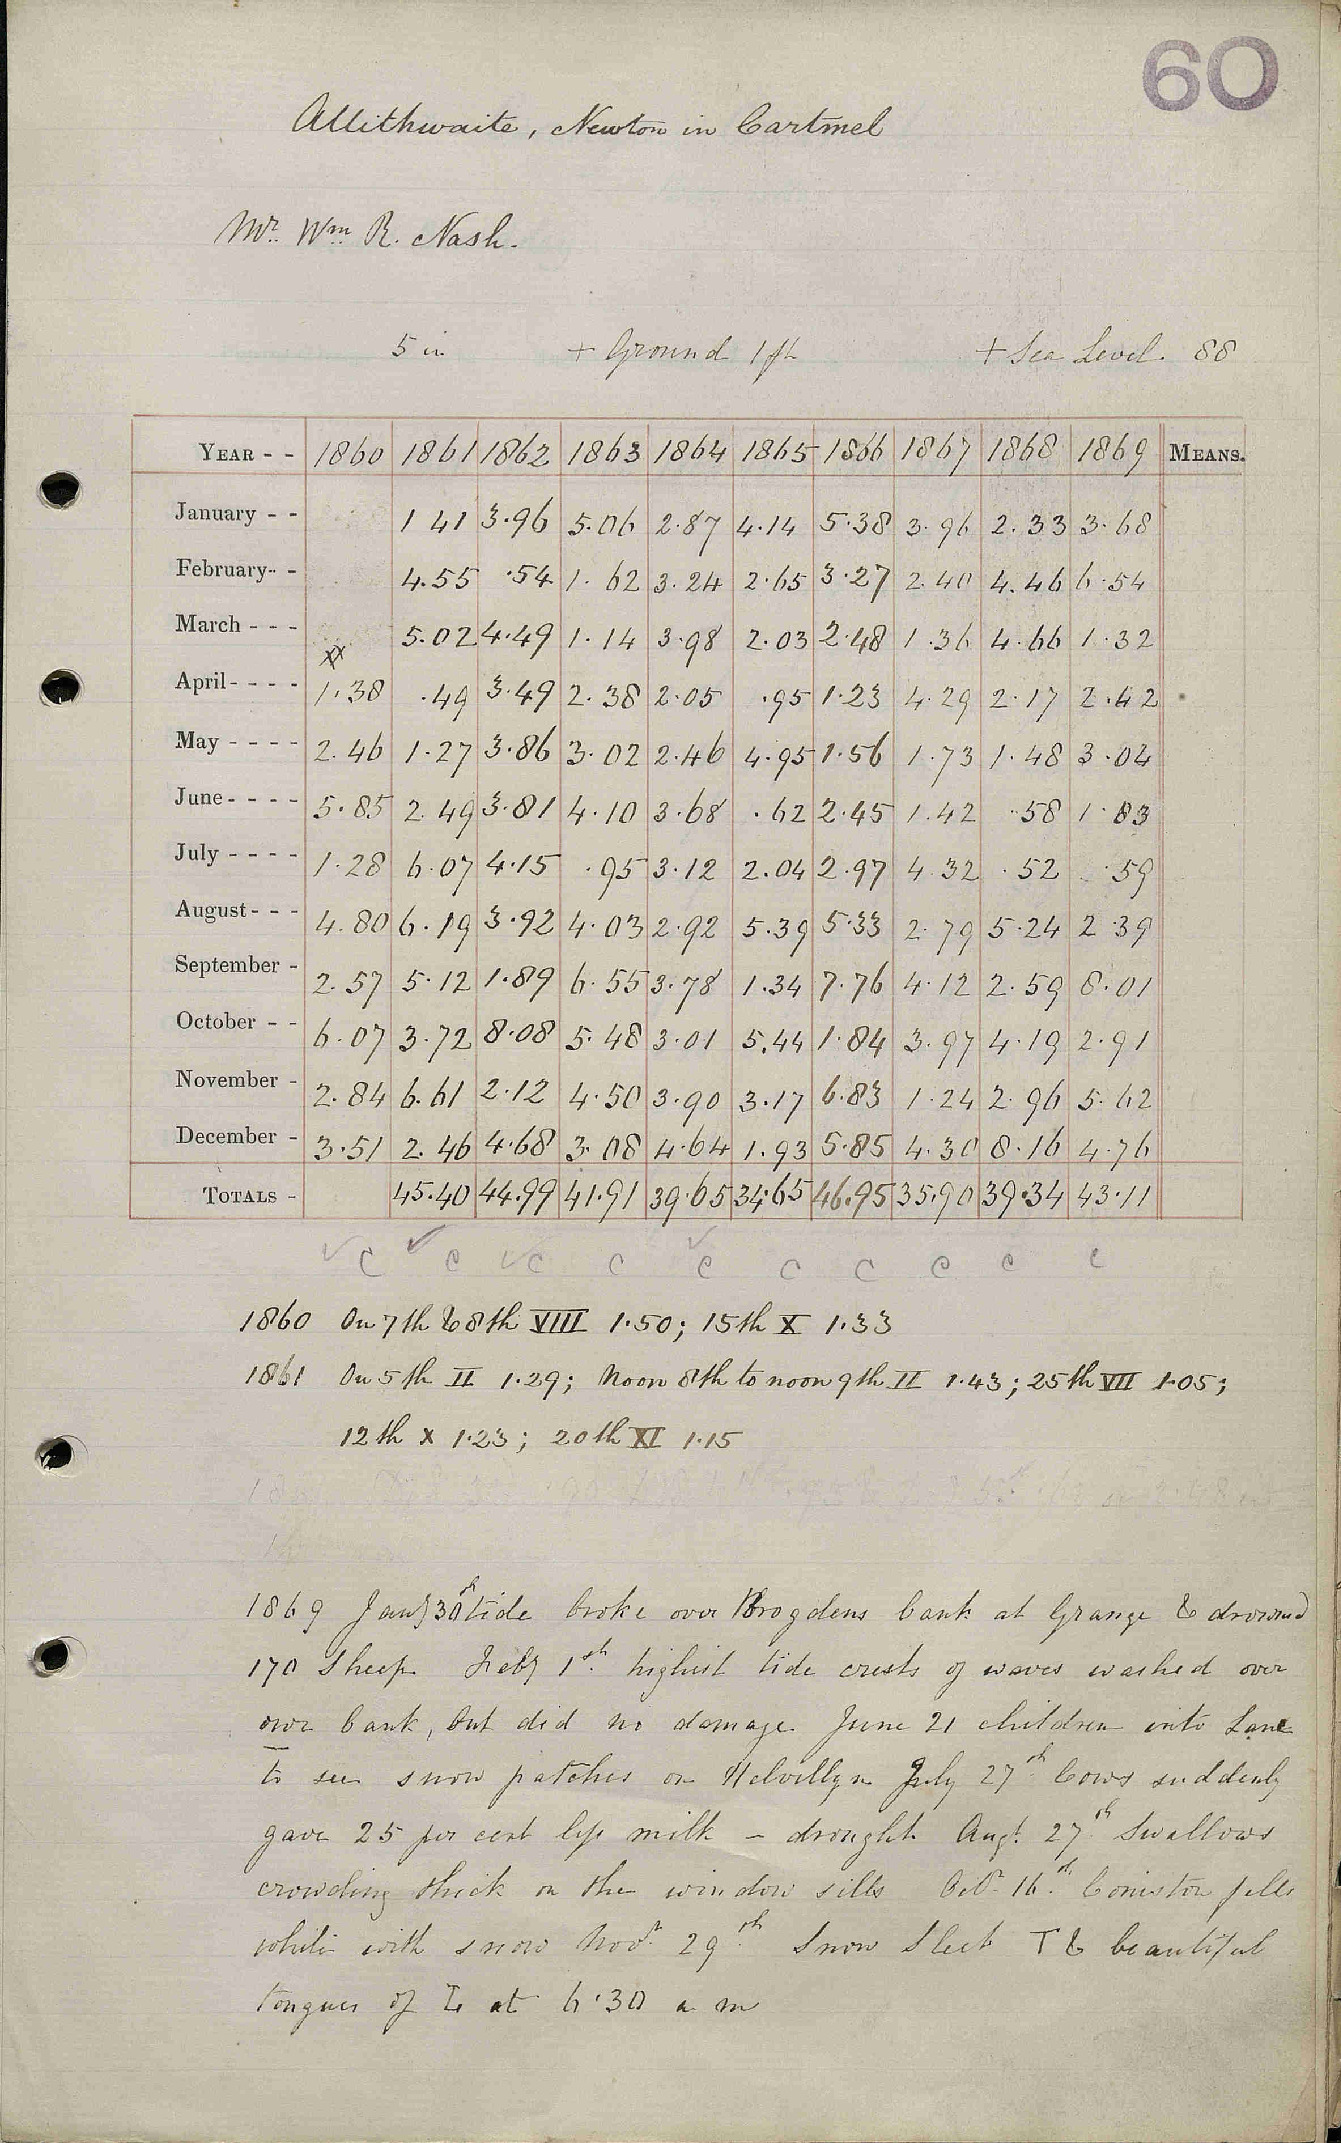 60
Allithwaite, Newton in Cartmel
Mr. Wm. R. Nash.
5 in + Ground 1 ft + Sea Level. 88
YEAR - - 1860 1861 1862 1863 1864 1865 1866 1867 1868 1869 MEANS.
January - - 1 41 3.96 5.06 2.87 4.14 5.38 3.96 2.33 3.68
February- - 4.55 .54 1.62 3.24 2.65 3.27 2.40 4.46 6.54
March - - - 5.02 4.49 1.14 3.98 2.03 2.48 1.36 4.66 1.32
xx
April- - - - 1.38 .49 3.49 2.38 2.05 .95 1.23 4.29 2.17 2.42
May - - - - 2.46 1.27 3.86 3.02 2.46 4.95 1.56 1.73 1.48 3.04
June- - - - 5.85 2 49 3.81 4.10 3.68 .62 2.45 1.42 .58 1.83
July - - - - 1.28 6.07 4.15 .95 3.12 2.04 2.97 4.32 .52 .59
August- - - 4.80 6.19 3.92 4.03 2.92 5.39 5.33 2.79 5.24 2 39
September - 2.57 5.12 1.89 6.55 3.78 1.34 7.76 4.12 2.59 8.01
October - - 6.07 3.72 8.08 5.48 3.01 5.44 1.84 3.97 4.19 2.91
November - 2.84 6.61 2.12 4.50 3.90 3.17 6.83 1.24 2.96 5.62
December - 3.51 2.46 4.68 3.08 4.64 1.93 5.85 4.30 8.16 4.76
TOTALS - 45.40 44.99 41.91 39.65 34.65 46.95 35.90 39.34 43.11
✓ C ✓ C ✓ C C ✓ C C C C C C
1860 On 7th & 8th VIII 1.50; 15th X 1.33
1861 On 5th II 1.29; Noon 8th to noon 9th II 1.43; 25th VII 1.05;
12th X 1.23; 20th XI 1.15
1869 Jany 30th tide broke over Brogdens bank at Grange & drowned
170 Sheep Feby 1st highest tide crests of waves washed over
our bank, but did no damage June 21 children into Lane
to see snow patches on Helvellyn July 27th Cows suddenly
gave 25 per cent less milk - drought Augt. 27th Swallows
crowding thick on the window sills Octr. 16th Coniston fells
white with snow Novr. 29th Snow Sleet T & beautiful
tongues of L at 6.30 a m